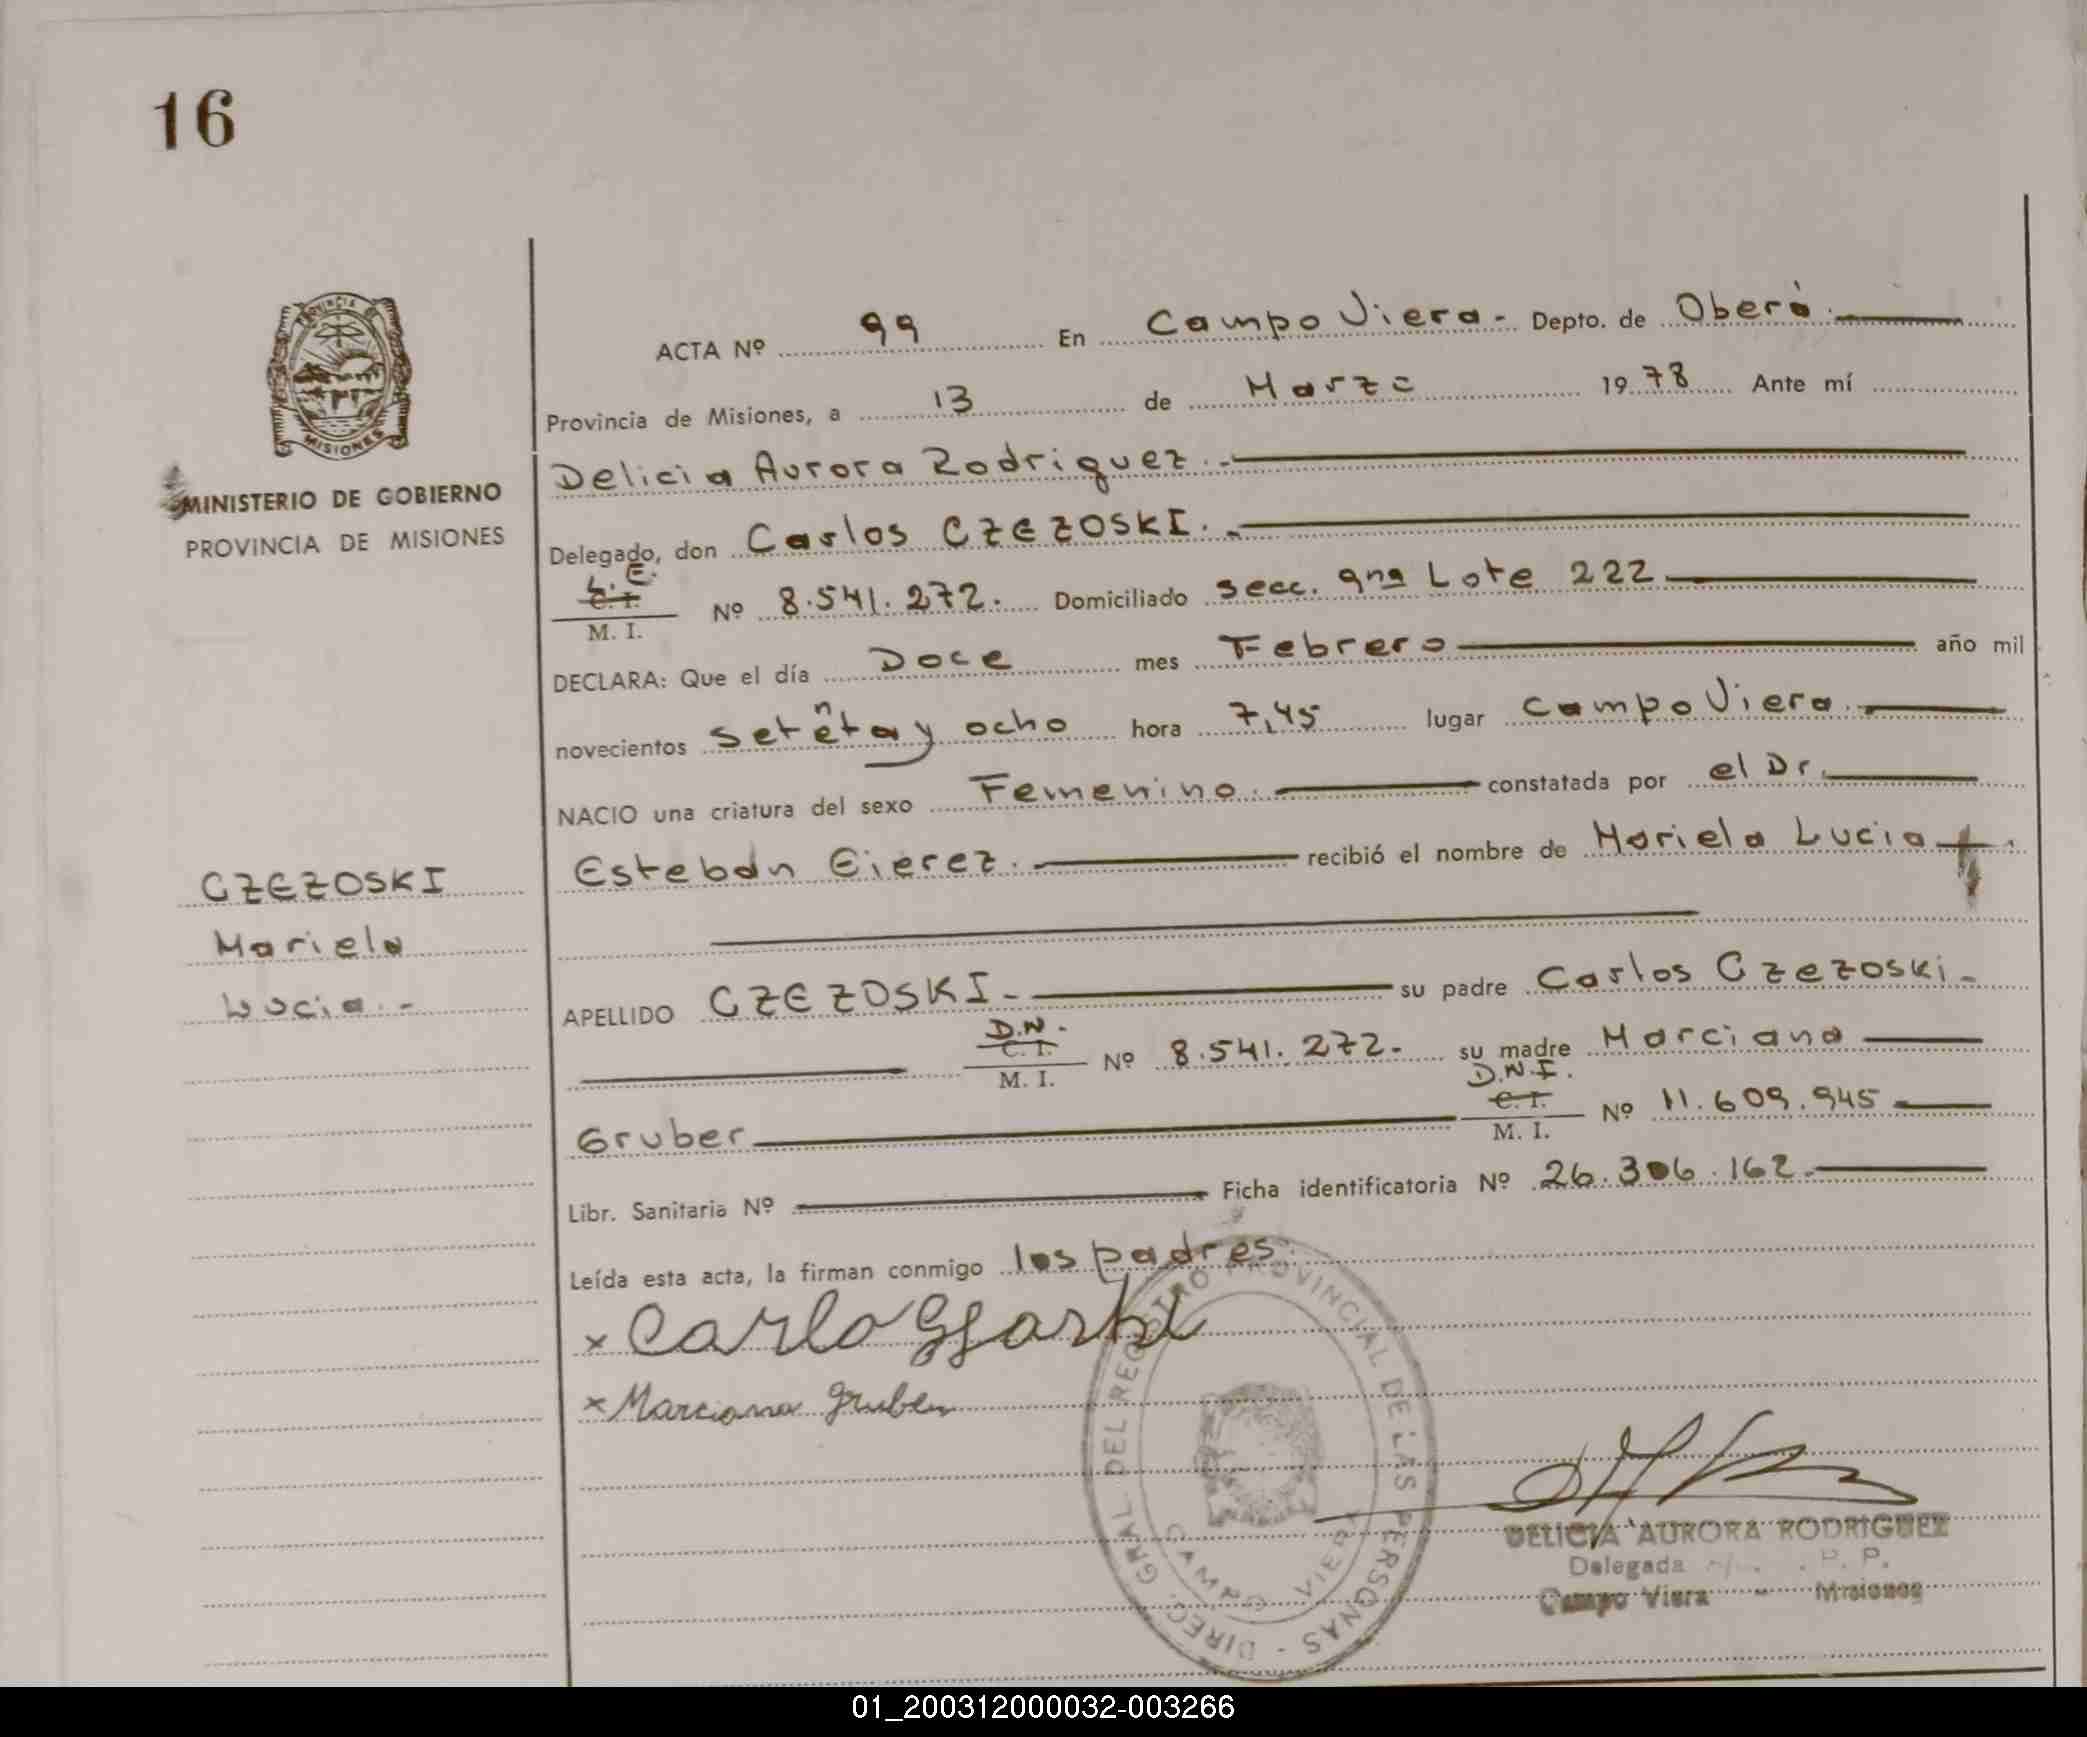 16
PROVINCIA DE
MISIONES
MINISTERIO DE GOBIERNO
PROVINCIA DE MISIONES
CZEZOSKI
Mariela
Lucia.-
ACTA Nº 99 En Campo Viera.- Depto. de Oberá.
Provincia de Misiones, a 13 de Marzo 1978 Ante mí
Delicia Aurora Rodriguez.-
Delegado, don Carlos CZEZOSKI.-
L.E.
C. I.
M. I. Nº 8.541.272. Domiciliado Secc. 9na Lote 222
DECLARA: Que el día Doce mes Febrero año mil
novecientos setenta y ocho hora 7,45 lugar Campo Viera.
NACIO una criatura del sexo Femenino. constatada por el Dr.
Esteban Eierez. recibió el nombre de Mariela Lucia
APELLIDO CZEZOSKI.- su padre Carlos Czezoski.-
D.N.
C. I.
M. I. Nº 8.541.272.- su madre Marciana
Gruber D.N.I.
C. I.
M. I. Nº 11.609.945
Libr. Sanitaria Nº Ficha identificatoria Nº 26.306.162.
Leída esta acta, la firman conmigo los padres.
x Carlo
x Marciana Gruber
DIREC. GRAL. DEL REGISTRO PROVINCIAL DE LAS PERSONAS -
CAMPO VIERA
DELICIA AURORA RODRIGUEZ
Delegada P. P.
Campo Viera - Misiones
01_200312000032-003266